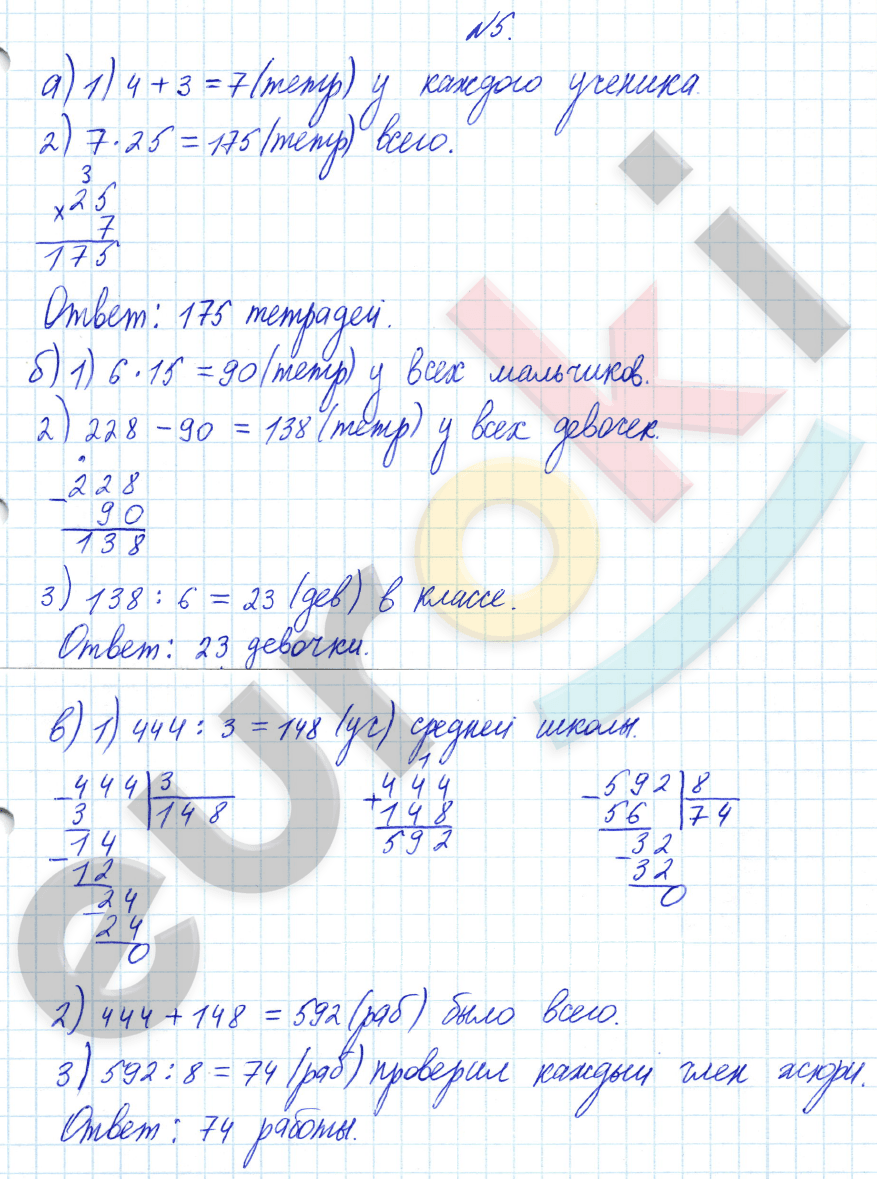 №5.
а) 1) 4 + 3 = 7 (тетр) у каждого ученика.
2) 7 · 25 = 175 (тетр) всего.
3
× 25
7
175
Ответ: 175 тетрадей.
б) 1) 6 · 15 = 90 (тетр) у всех мальчиков.
2) 228 - 90 = 138 (тетр) у всех девочек.
- 228
90
138
3) 138 : 6 = 23 (дев) в классе.
Ответ: 23 девочки.
в) 1) 444 : 3 = 148 (уч) средней школы.
- 444 | 3
3 148
- 14
12
- 24
24
0
1
+ 444
148
592
- 592 | 8
56 74
- 32
32
0
2) 444 + 148 = 592 (раб) было всего.
3) 592 : 8 = 74 (раб) проверил каждый член жюри.
Ответ: 74 работы.
euroki